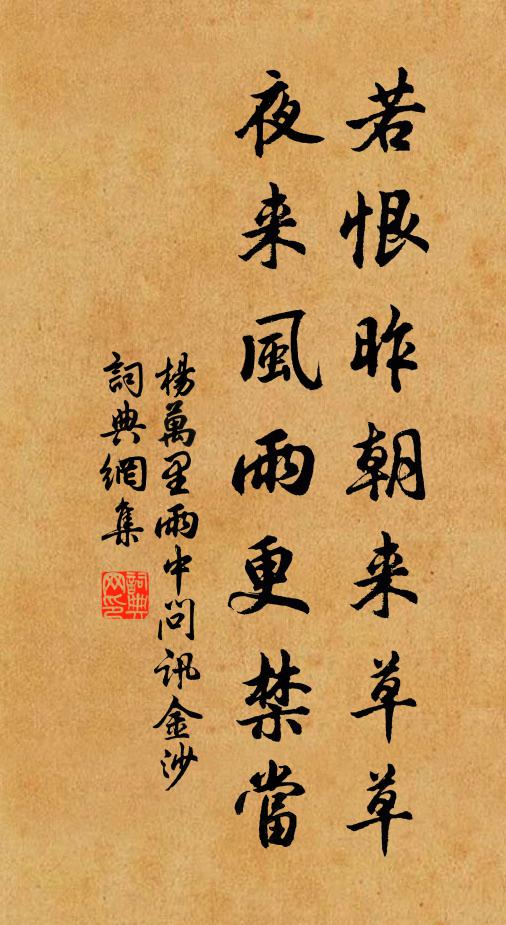 若恨昨朝来草草
夜来風雨更禁當
楊萬里雨中問訊金沙
詞典網集
詞典网印